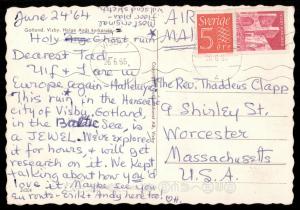 June 24 '64
Gotland. Visby. Helge Ands kyrkoruin
Holy Ghost ruin
Dearest Tad
Ulf & I are in
Europe again - Hallelujah
This ruin in the Hanseatic
city of Visby, Gotland,
in the Baltic Sea, is
a JEWEL. We've explored
it for hours, & will get
research on it. We kept
talking about how you'd
love it. Maybe see you
en route - Erik & Andy here too!
AIR
MAIL
Sverige
5
ÖRE
The Rev. Thaddeus Clapp
9 Shirley St.
Worcester
Massachusetts
U.S.A.